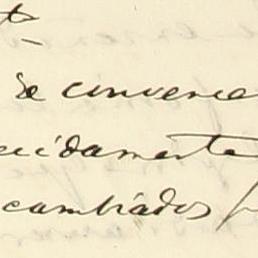 se convence
cidamente
cambiados